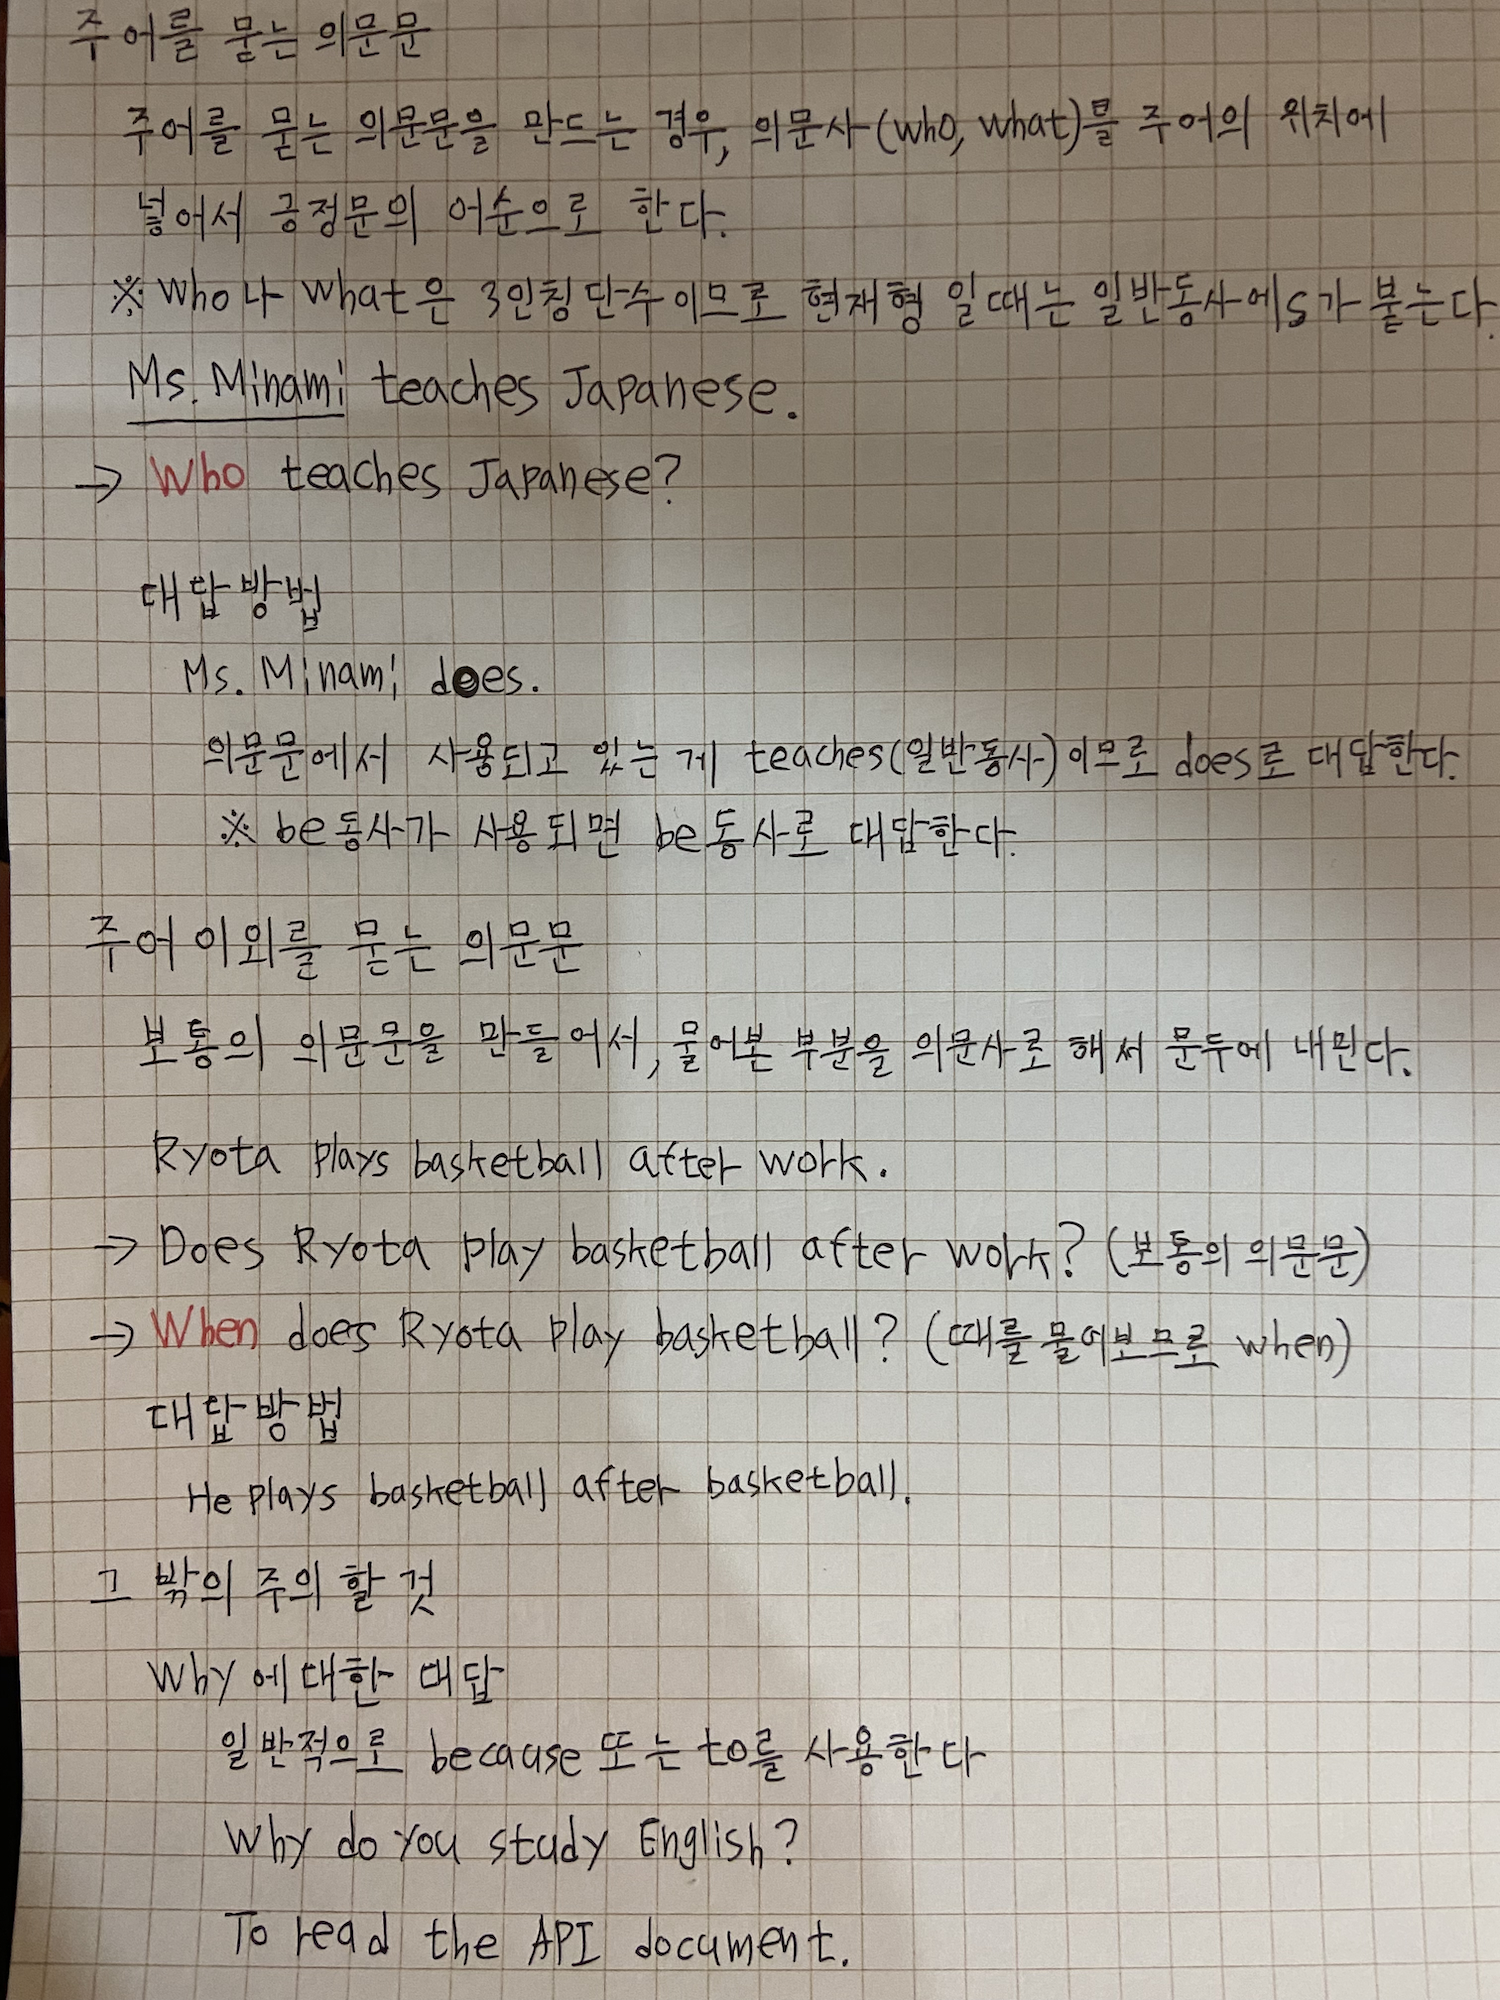 주어를 묻는 의문문
주어를 묻는 의문문을 만드는 경우, 의문사(who, what)를 주어의 위치에
넣어서 긍정문의 어순으로 한다.
※ who나 what은 3인칭단수이므로 현재형 일때는 일반동사에s가 붙는다.
Ms. Minami teaches Japanese.
→ Who teaches Japanese?
대답방법
Ms. Minami does.
의문문에서 사용되고 있는게 teaches(일반동사)이므로 does로 대답한다.
※ be동사가 사용되면 be동사로 대답한다.
주어 이외를 묻는 의문문
보통의 의문문을 만들어서, 물어본 부분을 의문사로 해서 문두에 내민다.
Ryota plays basketball after work.
→ Does Ryota play basketball after work? (보통의 의문문)
→ When does Ryota play basketball? (때를 물어보므로 when)
대답방법
He plays basketball after basketball.
그 밖의 주의 할 것
Why에 대한 대답
일반적으로 because 또는 to를 사용한다
Why do you study English?
To read the API document.